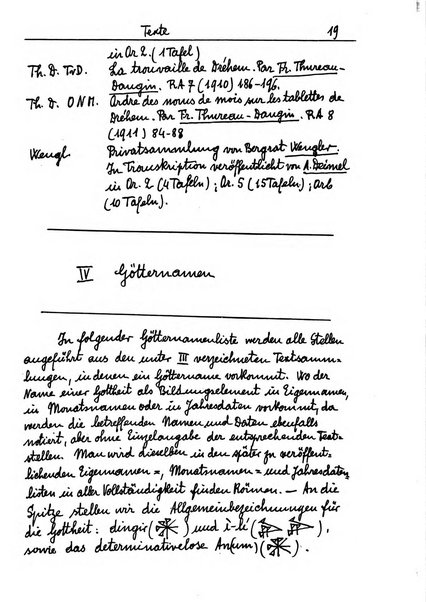 Texte 19
in Or. 2. (1 Tafel)
Th. D. TrD. La trouvaille de Dréhem. Par Fr. Thureau-
Dangin. RA 7 (1910) 186-196.
Th. D. ONM. Ordre des noms de mois sur les tablettes de
Dréhem. Par Fr. Thureau-Dangin. RA 8
(1911) 84-88
Wengl. Privatsammlung von Bergrat Wengler.
In Transkription veröffentlicht von A. Deimel
in Or. 2 (4 Tafeln); Or. 5 (15 Tafeln); Or 6
(10 Tafeln).
IV Götternamen
In folgender Götternamenliste werden alle Stellen
angeführt aus den unter III verzeichneten Textsamm=
lungen, in denen ein Göttername vorkommt. Wo der
Name einer Gottheit als Bildungselement in Eigennamen,
in Monatsnamen oder in Jahresdaten vorkommt, da
werden die betreffenden Namen und Daten ebenfalls
notiert, aber ohne Einzelangabe der entsprechenden Text=
stellen. Man wird dieselben in den später zu veröffent=
lichenden Eigennamen=, Monatsnamen= und Jahresdaten
listen in aller Vollständigkeit finden können. — An die
Spitze stellen wir die Allgemeinbezeichnungen für
die Gottheit: dingir (𒀭) und i-lí ( ),
sowie das determinativelose An(um) (𒀭).